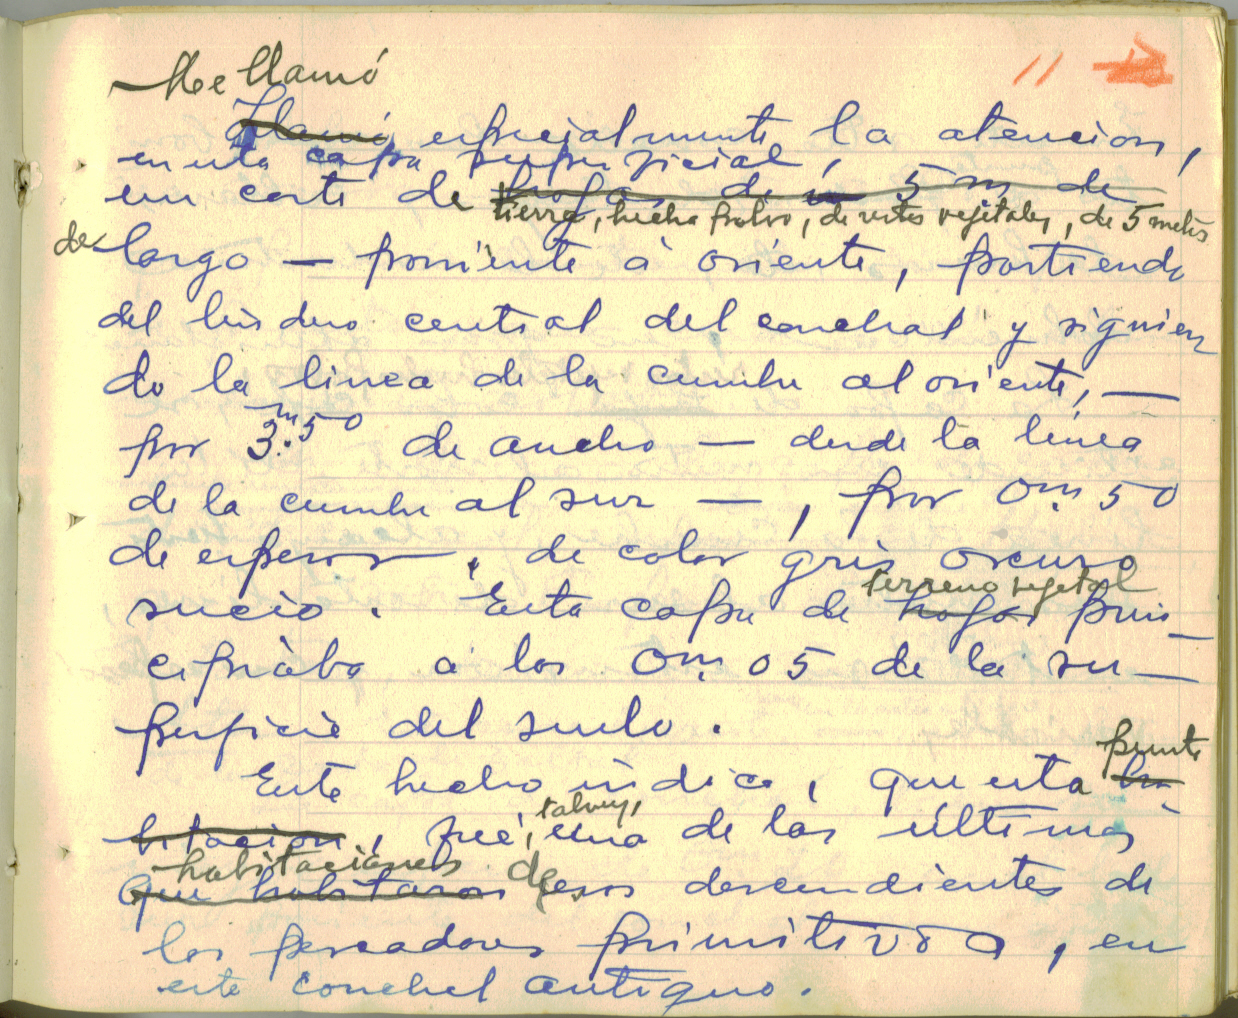 11
Me llamó
Llamó especialmente la atencion,
en esta capa superficial,
un corte de hogar de 5 m de
tierra, hecha polvo, de restos vejetales, de 5 metros
de largo — poniente á oriente, partiendo
del lindero central del conchal y siguien
do la linea de la cumbre al oriente, —
por 3.m50 de ancho — desde la línea
de la cumbre al sur —, por 0m.50
de espesor, de color gris oscuro
terreno vejetal
sucio. Esta capa de hogar prin_
cipiaba á los 0m.05 de la su_
perficie del suelo.
punta
Este hecho indica, que esta ha_
talvez,
bitacion, fué, una de las últimas
habitaciones de
que habitaron esos descendientes de
los pescadores primitivos, en
este conchal antiguo.